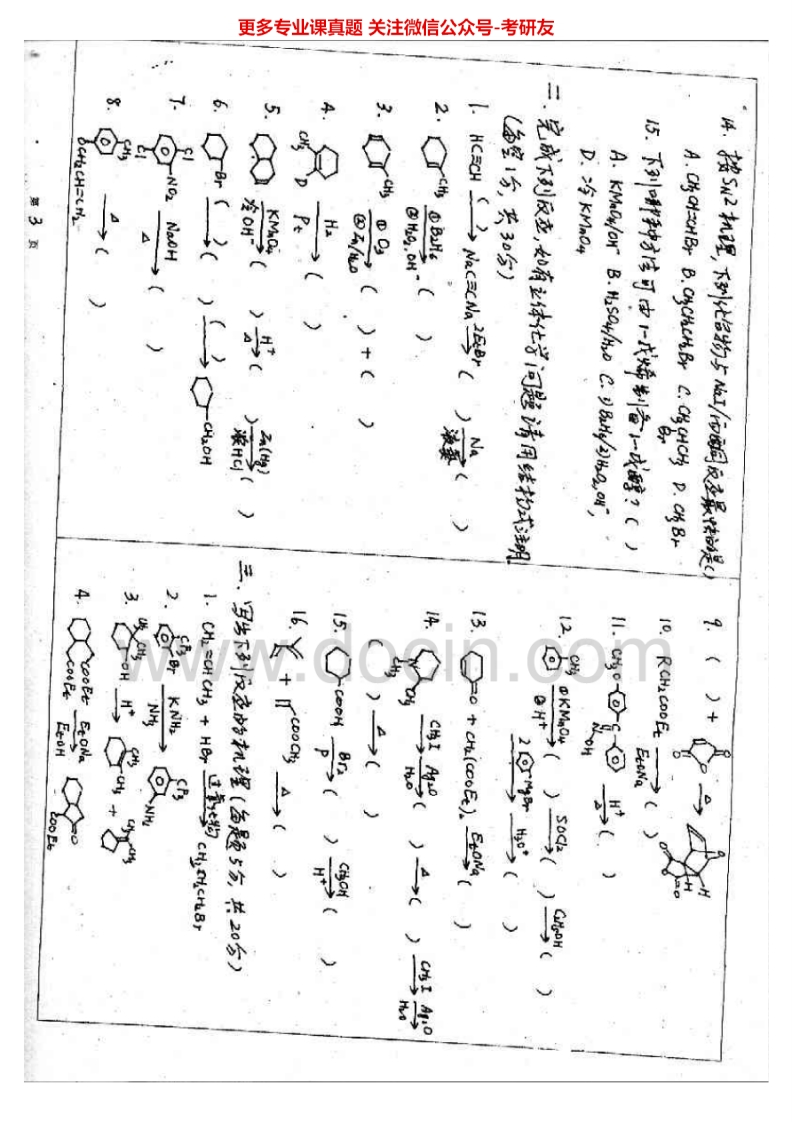 更多专业课真题 关注微信公众号-考研友
14. 按SN2机理,下列化合物与NaI/丙酮反应最快的是( )
A. CH3CH=CHBr B. CH3CH2CH2Br C. CH3CHCH3 D. CH3Br
Br
15. 下列哪种方法可由1-戊烯制备1-戊醇? ( )
A. KMnO4/OH⁻ B. H2SO4/H2O C. 1) B2H6/2) H2O2,OH⁻,
D. 冷KMnO4
二. 完成下列反应,如有立体化学问题请用结构式注明
(每空1分,共30分)
1. HC≡CH ( ) NaC≡CNa 2EtBr ( ) Na 液氨 ( )
2. CH3 ①B2H6 ②H2O2,OH⁻ ( )
3. CH3 ①O3 ②Zn/H2O ( ) + ( )
4. CH3 D H2 Pt ( )
5. KMnO4 冷OH⁻ ( ) H⁺ Δ ( ) Zn(Hg) 浓HCl ( )
6. Br ( ) ( ) ( ) CH2OH
7. Cl Cl NO2 NaOH Δ ( )
8. CH3 OCH2CH=CH2 Δ ( )
第 3 页
9. ( ) + O O O Δ O H H O O O
10. RCH2COOEt EtONa ( )
11. CH3O C N OH H⁺ Δ ( )
12. CH3 ①KMnO4 ②H⁺ ( ) SOCl2 ( ) C2H5OH ( )
2 MgBr H3O⁺ ( )
13. =O + CH2(COOEt)2 EtONa ( )
14. N CH3 CH3 CH3I Ag2O H2O ( ) Δ ( ) CH3I Ag2O H2O
( ) Δ ( )
15. COOH Br2 P ( ) CH3OH H⁺ ( )
16. + COOCH3 Δ ( )
三. 写出下列反应的机理(每题5分,共20分)
1. CH2=CHCH3 + HBr 过氧化物 CH3CH2CH2Br
2. CF3 Br KNH2 NH3 CF3 NH2
3. CH3 CH3 OH H⁺ CH3 CH3 + CH3 C CH3
4. COOEt COOEt EtONa EtOH O COOEt
www.docin.com